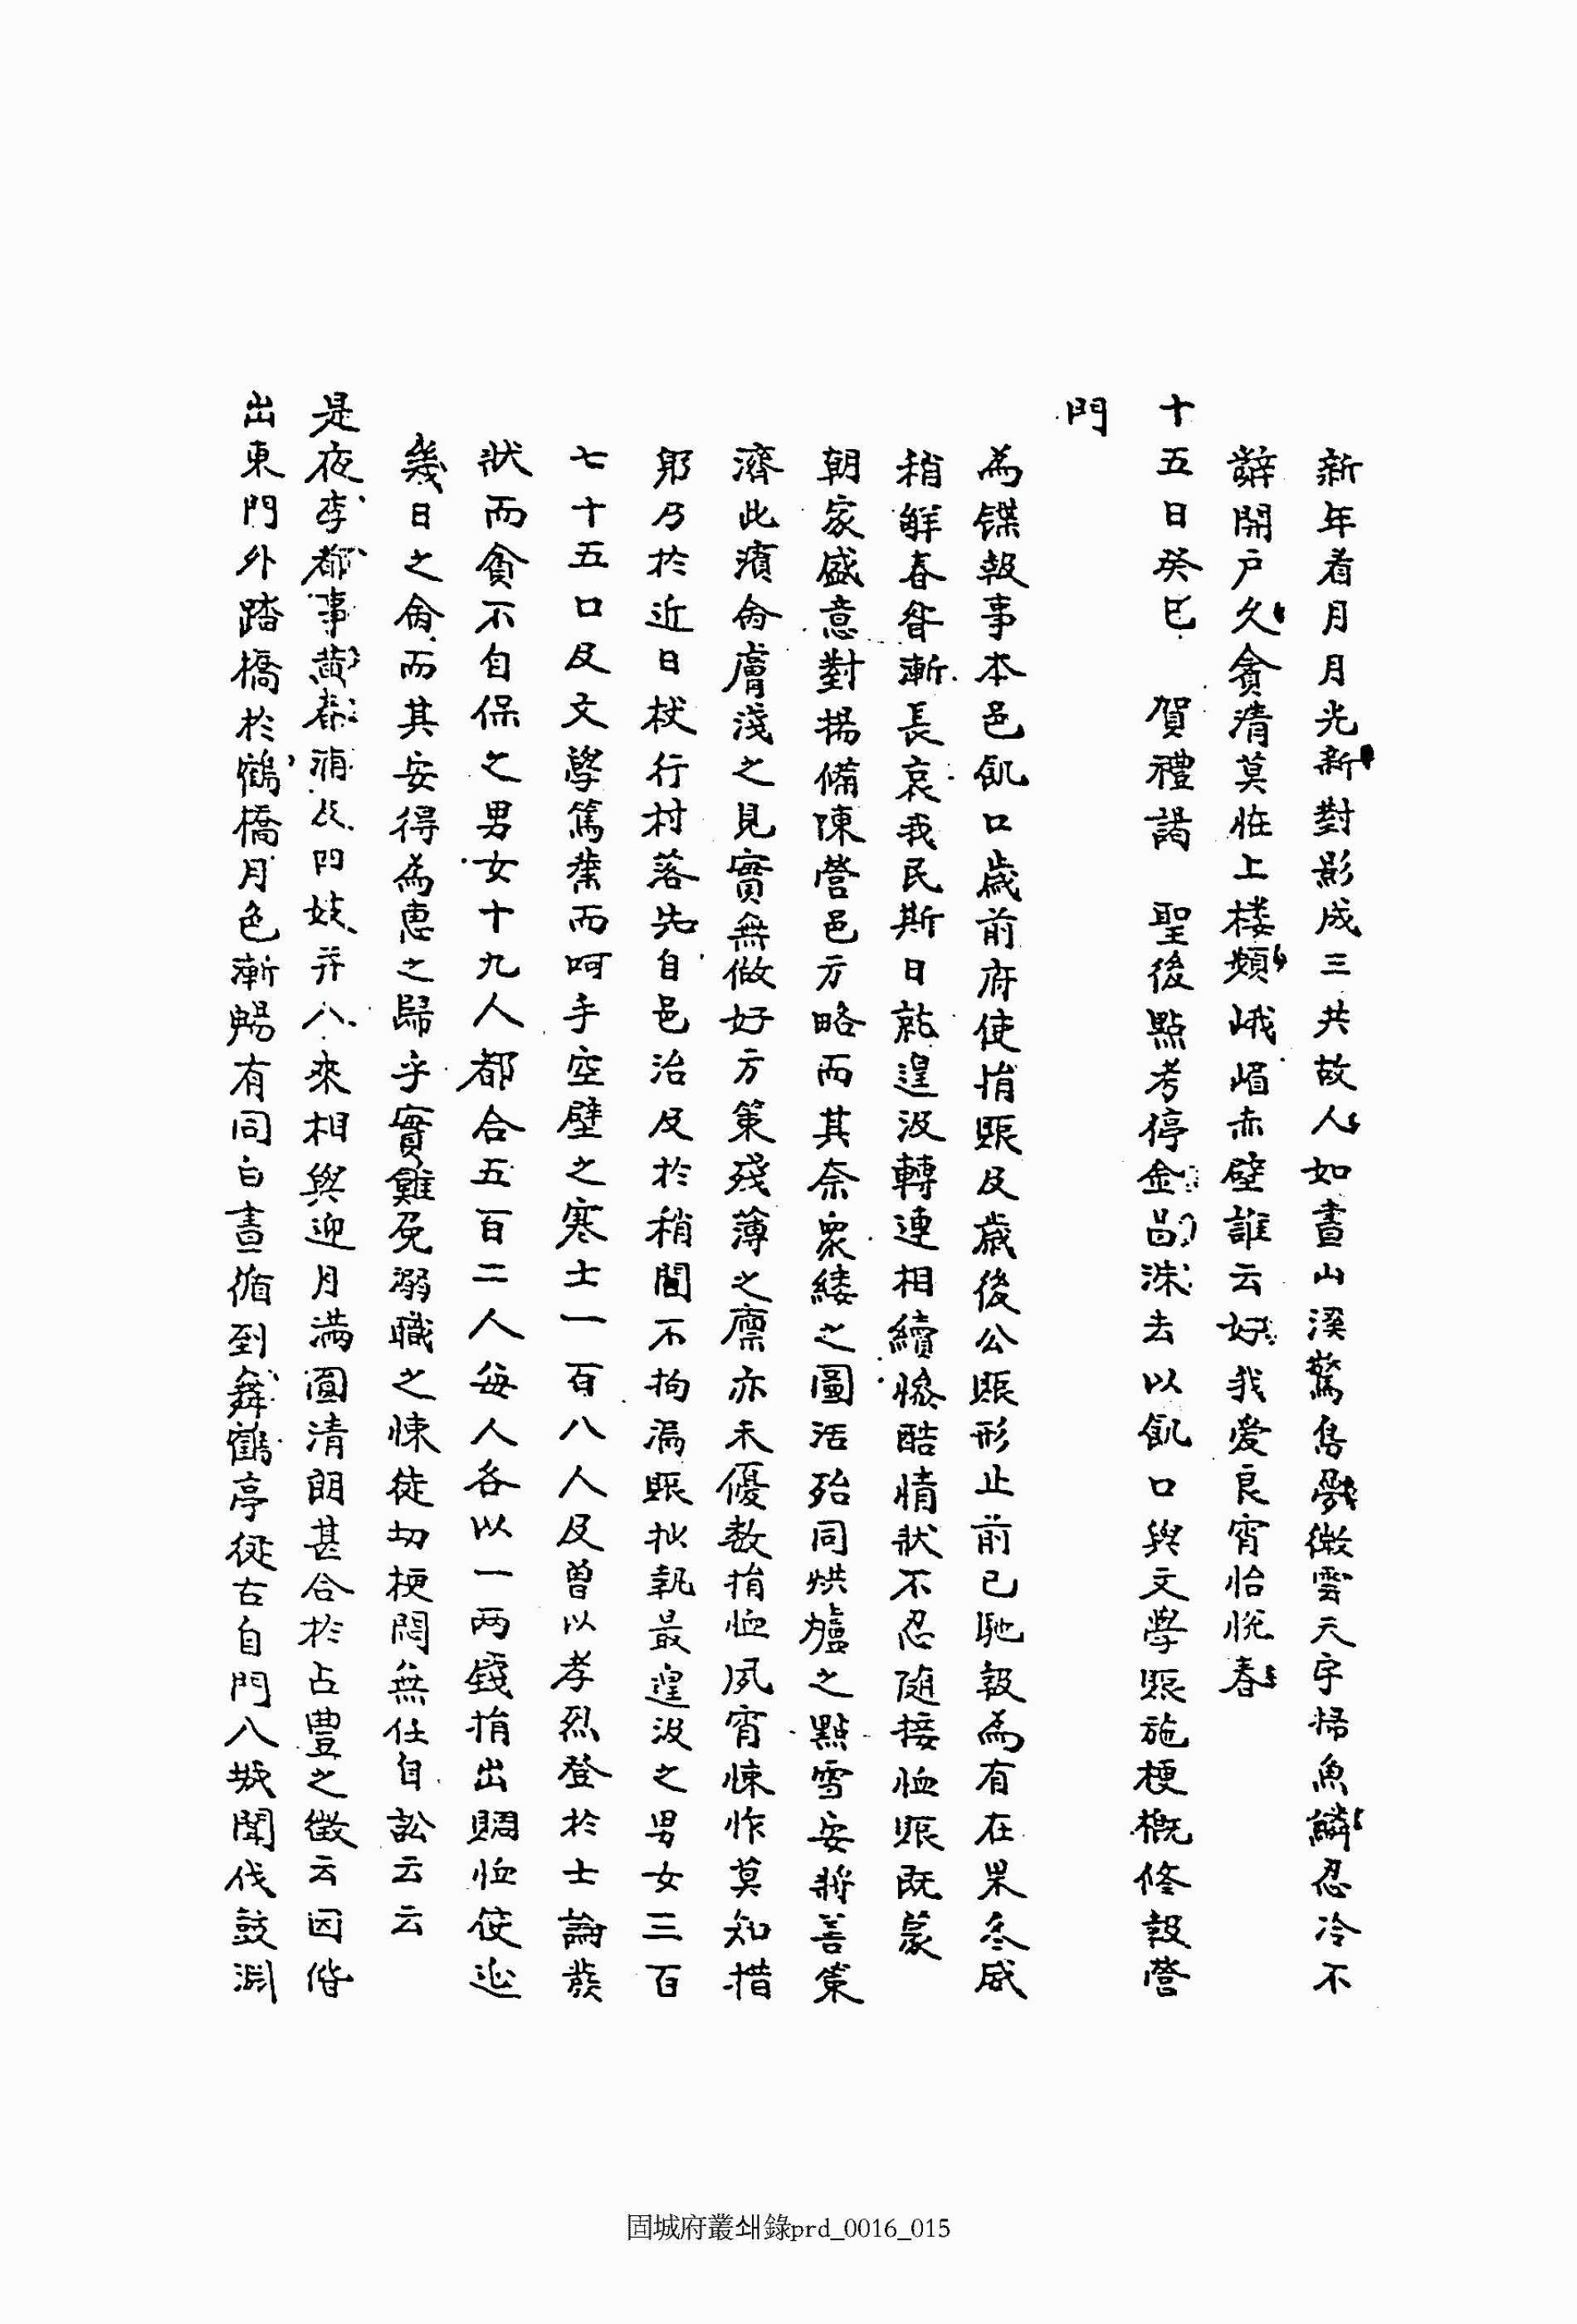 新年看月月光新對影成三共故人如晝山溪驚鳥夢微雲天宇掃魚鱗忍冷不
辭開戶久貪淸莫怪上樓頻峨嵋赤壁誰云好我愛良宵怡悅春
十五日癸巳 賀禮謁 聖後點考停金昌洙去以飢口與文學賑施梗槪修報營
門
爲牒報事本邑飢口歲前府使捐賑及歲後公賑形止前已馳報爲有在果冬威
稍解春晷漸長哀我民斯日就遑汲轉連相續慘酷情狀不忍随接恤賑旣蒙
朝家盛意對揚備陳營邑方略而其奈衆緌之圖活殆同烘爐之點雪安將善策
濟此濱命膚淺之見實無做好方策殘薄之廩亦未優數捐恤夙宵悚怍莫知措
躬乃於近日杖行村落先自邑治及於稍閒不拘漏賑抄執最遑汲之男女三百
七十五口及文學篤業而呵手空壁之寒士一百八人及曾以孝烈登於士論蔟
狀而貧不自保之男女十九人都合五百二人每人各以一兩錢捐出賙恤使延
幾日之命而其安得爲惠之歸乎實難免溺職之悚徒切梗悶無任自訟云云
是夜李都事黃春補及四妓幷八來相與迎月滿圓淸朗甚合於占豊之徵云因偕
出東門外踏橋於鶴橋月色漸暢有同白晝循到舞鶴亭從古自門八城聞伐鼓淵